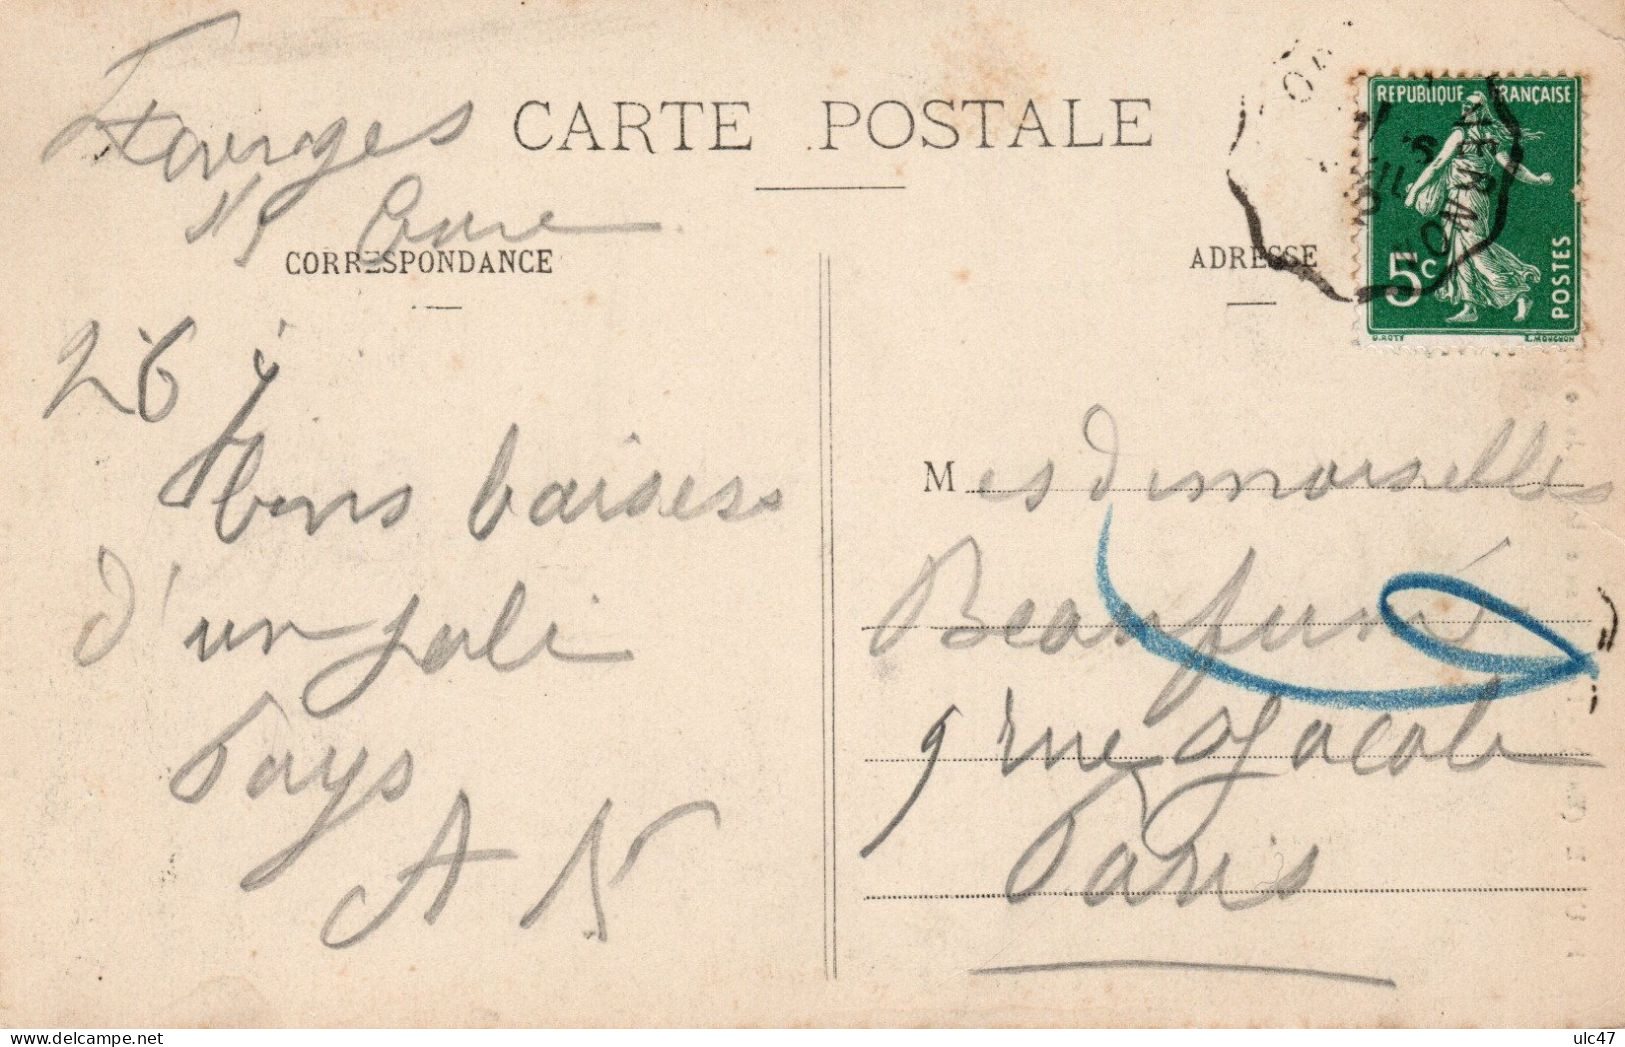 Fourges
Eure
CARTE POSTALE
CORRESPONDANCE
26
bons baisers
d'un joli
Pays
A N
ADRESSE
REPUBLIQUE FRANÇAISE
5c
POSTES
O. ROTY
E. MOUCHON
VERNON
Mesdemoiselles
Beaufumé
9 rue Jacob
Paris
ulc47